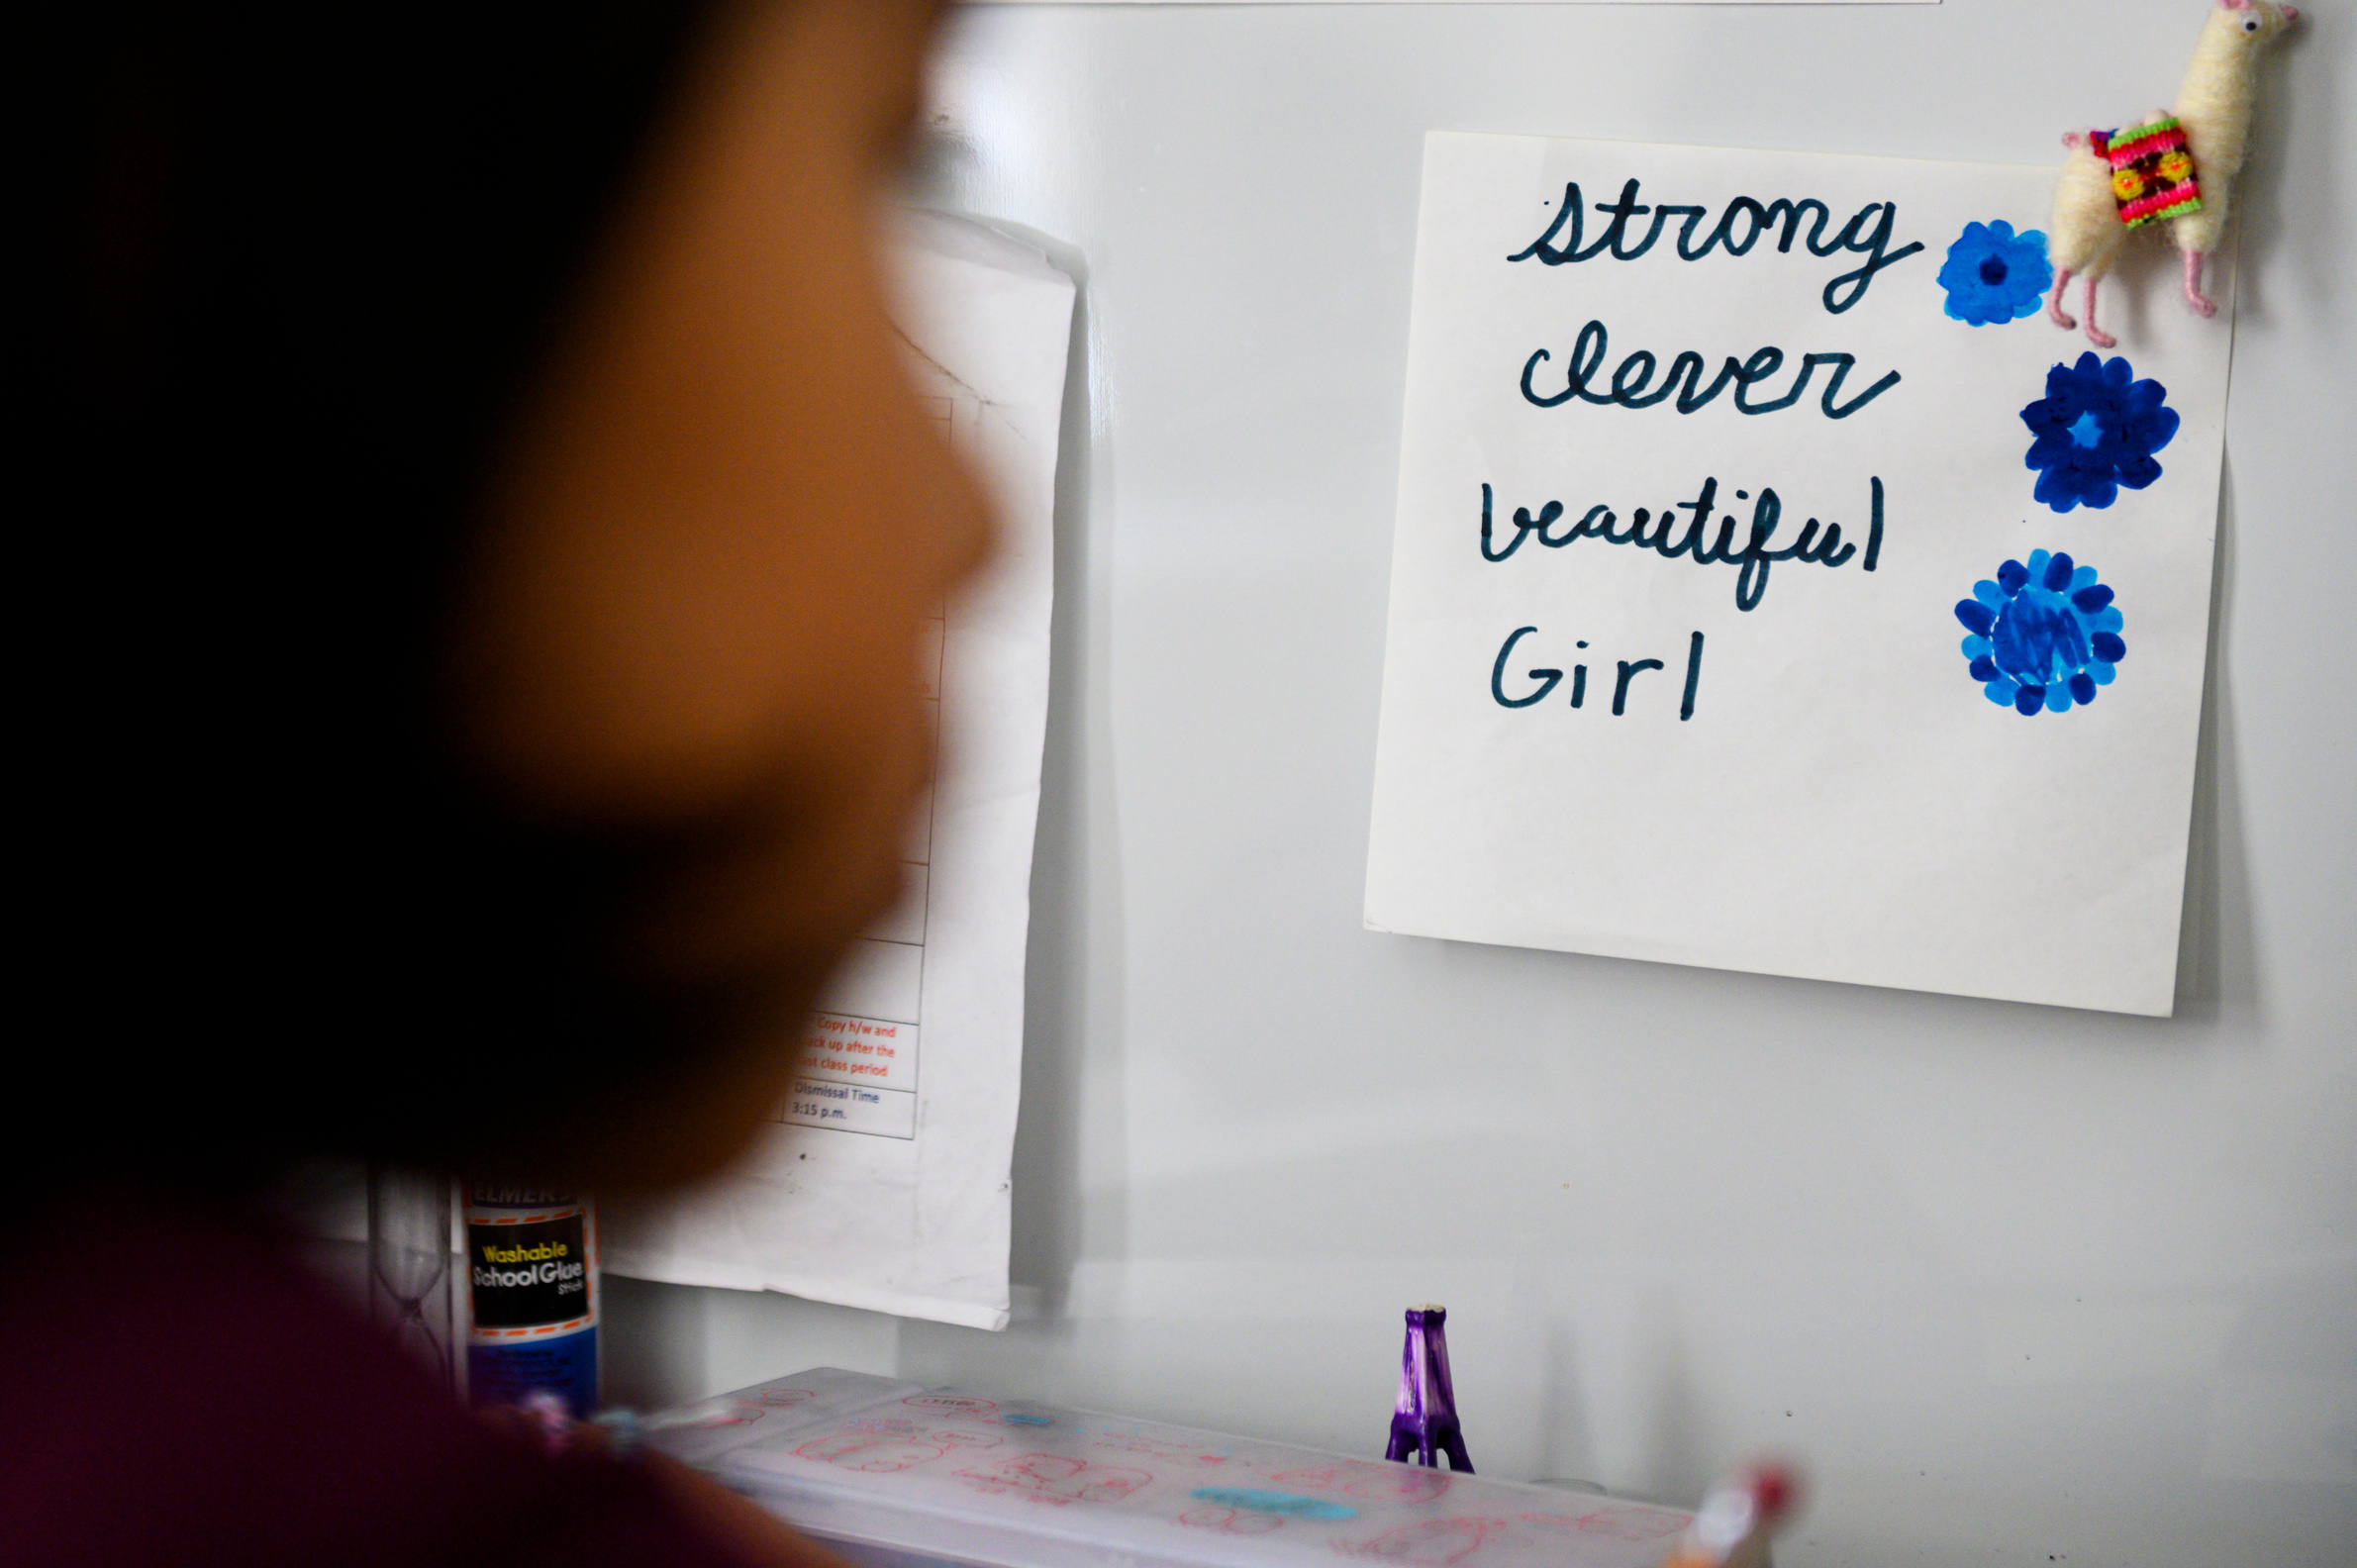 strong
clever
beautiful
Girl
Copy h/w and
up after the
class period
Dismissal Time
3:15 p.m.
ELMER'S
Washable
School Glue
Stick